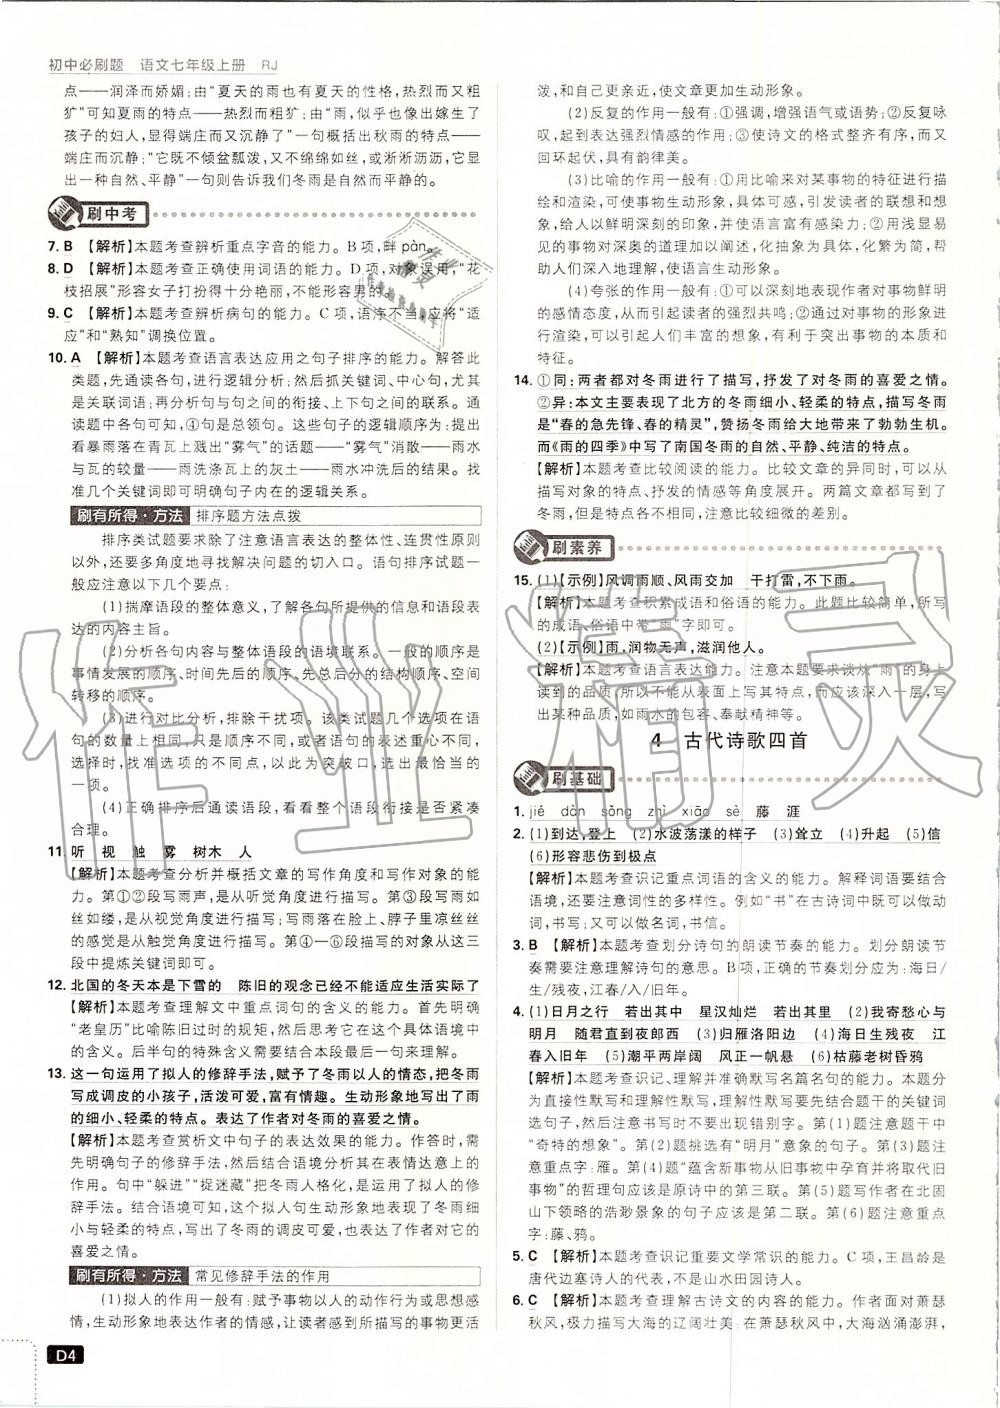 初中必刷题　语文七年级上册　RJ
点——润泽而娇媚；由“夏天的雨也有夏天的性格，热烈而又粗
犷”可知夏雨的特点——热烈而粗犷；由“雨，似乎也像出嫁生了
孩子的妇人，显得端庄而又沉静了”一句概括出秋雨的特点——
端庄而沉静；“它既不倾盆瓢泼，又不绵绵如丝，或淅淅沥沥，它显
出一种自然、平静”一句则告诉我们冬雨是自然而平静的。
刷中考
7. B　【解析】本题考查辨析重点字音的能力。B项，畔 pàn。
8. D　【解析】本题考查正确使用词语的能力。D项，对象误用，“花
枝招展”形容女子打扮得十分艳丽，不能形容百果的。
9. C　【解析】本题考查辨析病句的能力。C项，语序不当，应将“适
应”和“熟知”调换位置。
10. A　【解析】本题考查语言表达应用之句子排序的能力。解答此
类题，先通读各句，进行逻辑分析；然后抓关键词、中心句，尤其
是关联词语；再分析句与句之间的衔接、上下句之间的联系。通
读题中各句可知，④句是总领句。这些句子的逻辑顺序是：提出
看暴雨落在青瓦上溅出“雾气”的话题——“雾气”消散——雨水
与瓦的较量——雨洗涤瓦上的灰土——雨水冲洗后的结果。找
准几个关键词即可明确句子内在的逻辑关系。
刷有所得·方法　排序题方法点拨
排序类试题要求除了注意语言表达的整体性、连贯性原则
以外，还要多角度地寻找解决问题的切入口。语句排序试题一
般应注意以下几个要点：
(1)揣摩语段的整体意义，了解各句所提供的信息和语段表
达的内容主旨。
(2)分析各句内容与整体语段的语境联系。一般的顺序是
事情发展的顺序、时间先后的顺序、先总后分的结构顺序、空间
转移的顺序。
(3)进行对比分析，排除干扰项。该类试题几个选项在语
句的数量上相同，只是顺序不同，试题的设置重心不在正面
选择时，找出选项的不同点，比较其不同，效果会更好。
(4)正确排序后通读语段，看看整个语段是否紧凑
合理。
11. 听　视　触　雾　树木　人
【解析】本题考查分析并概括文章的写作角度和写作对象的能
力。第①②段写雨声，是从听觉角度进行描写。第③段写雨如
丝如缕，是从视觉角度进行描写；写雨落在脸上、脖子里凉丝丝
的感觉是从触觉角度进行描写。第④—⑥段描写的对象从这三
段中提炼关键词即可。
12. 北国的冬天本是下雪的　陈旧的观念已经不能适应生活实际了
【解析】本题考查理解文中重点词句的含义的能力。首先明确
“老皇历”比喻陈旧过时的规矩，然后分析它在这个具体语境中
的含义。后半句的特殊含义需要结合本段最后一句来理解。
13. 这一句运用了拟人的修辞手法，赋予了冬雨以人的情态，把冬雨
写成调皮的小孩子，活泼可爱，富有情趣。生动形象地写出了雨
的细小、轻柔的特点。表达了作者对冬雨的喜爱之情。
【解析】本题考查赏析文中句子的表达效果的能力。作答时，需
先明确句子的修辞手法，然后结合语境分析其在表情达意方面的
作用。句中“躲进”“捉迷藏”把冬雨人格化，是运用了拟人的修
辞手法。结合语境可知，这个拟人句生动形象地表现了冬雨细
小与轻柔的特点，写出了冬雨的调皮可爱，表达了作者对它的
喜爱之情。
刷有所得·方法　常见修辞手法的作用
(1)拟人的作用一般有：赋予事物以人的动作行为或思想感
情，生动形象地写出了某事物的情感，让读者感到所描写的事物更活
D4
泼，和自己更亲近，使文章更加生动形象。
(2)反复的作用一般有：①强调，增强语气或语势；②反复咏
叹，起到表达强烈情感的作用；③使诗文的格式整齐有序，而又
回环起伏，具有韵律美。
(3)比喻的作用一般有：①用来对某事物的特征进行描
绘和渲染，可使事物生动形象、具体可感，引发读者的联想和想
象，给人以鲜明深刻的印象，并使语言富有感染力；②用浅显易
见的事物对深奥的道理加以阐述，化抽象为具体，化繁为简，帮
助人们深入地理解，使语言生动形象。
(4)夸张的作用一般有：①可以深刻地表现作者对事物鲜明
的感情态度，从而引起读者的强烈共鸣；②通过对事物的形象进
行渲染，可以引起人们丰富的想象，有利于突出事物的本质和
特征。
14. ①同：两者都对冬雨进行了描写，抒发了对冬雨的喜爱之情。
②异：本文主要表现了北方的冬雨细小、轻柔的特点，描写冬雨
是“春的急先锋、春的精灵”，赞扬冬雨给大地带来了勃勃生机。
而《雨的四季》中写了南国冬雨的自然、平静、纯洁的特点。
【解析】本题考查比较阅读的能力。比较文章的异同时，可以从
描写对象的特点、抒发的情感等角度展开。两篇文章都是写了
冬雨，但作者的特点各不相同，注意比较细微的差别。
刷素养
15. (1)【示例】风调雨顺、风雨交加　干打雷，不下雨。
【解析】本题考查积累成语和俗语的能力。此题比较简单，所写
的成语、俗语中带“雨”字即可。
(2)【示例】雨，润物无声，滋润他人。
【解析】本题考查语言表达能力。注意本题要求谈从“雨”的身上
读到的品质，所以不能从表面上写其特点，而应该深入一层，写
出某种品质，如雨水的包容、奉献精神等。
4　古代诗歌四首
刷基础
1. jié　dàn　sǒng　zhì　xiāo　sè　藤　涯
2. (1)到达，登上　(2)水波荡漾的样子　(3)耸立　(4)升起　(5)信
(6)形容悲伤到极点
【解析】本题考查识记重点词语的含义的能力。解释词语要结合
语境，还要注意词语的多样性。例如“书”在古诗词中既可以做动
词，书写；又可以做名词，书信。
3. B　【解析】本题考查划分诗句的朗读节奏的能力。划分朗读节
奏需要注意理解诗句的意思。B项，正确的节奏划分应为：海日/
生/残夜，江春/入/旧年。
4. (1)日月之行　若出其中　星汉灿烂　若出其里　(2)我寄愁心与
明月　随君直到夜郎西　(3)归雁洛阳边　(4)海日生残夜　江
春入旧年　(5)潮平两岸阔　风正一帆悬　(6)枯藤老树昏鸦
【解析】本题考查识记、理解并准确默写名篇名句的能力。本题分
为直接性默写和理解性默写，理解性默写要先结合题干的关键词
选句子，然后注意书写时不要出现错别字。第(1)题注意题干中
“奇特的想象”。第(2)题挑选有“明月”意象的句子。第(3)题注
意重点字：雁。第(4)题“蕴含新事物从旧事物中孕育并将取代旧
事物”的哲理句应该是原诗中的第三联。第(5)题写作者在北固
山下领略的浩渺景象的句子应该是第二联。第(6)题注意重点
字：藤、鸦。
5. C　【解析】本题考查识记重要文学常识的能力。C项，王昌龄是
唐代边塞诗人的代表，不是山水田园诗人。
6. C　【解析】本题考查理解古诗文的内容的能力。作者面对萧瑟
秋风，极力描写大海的辽阔壮美：在萧瑟秋风中，大海汹涌澎湃，
作业精灵